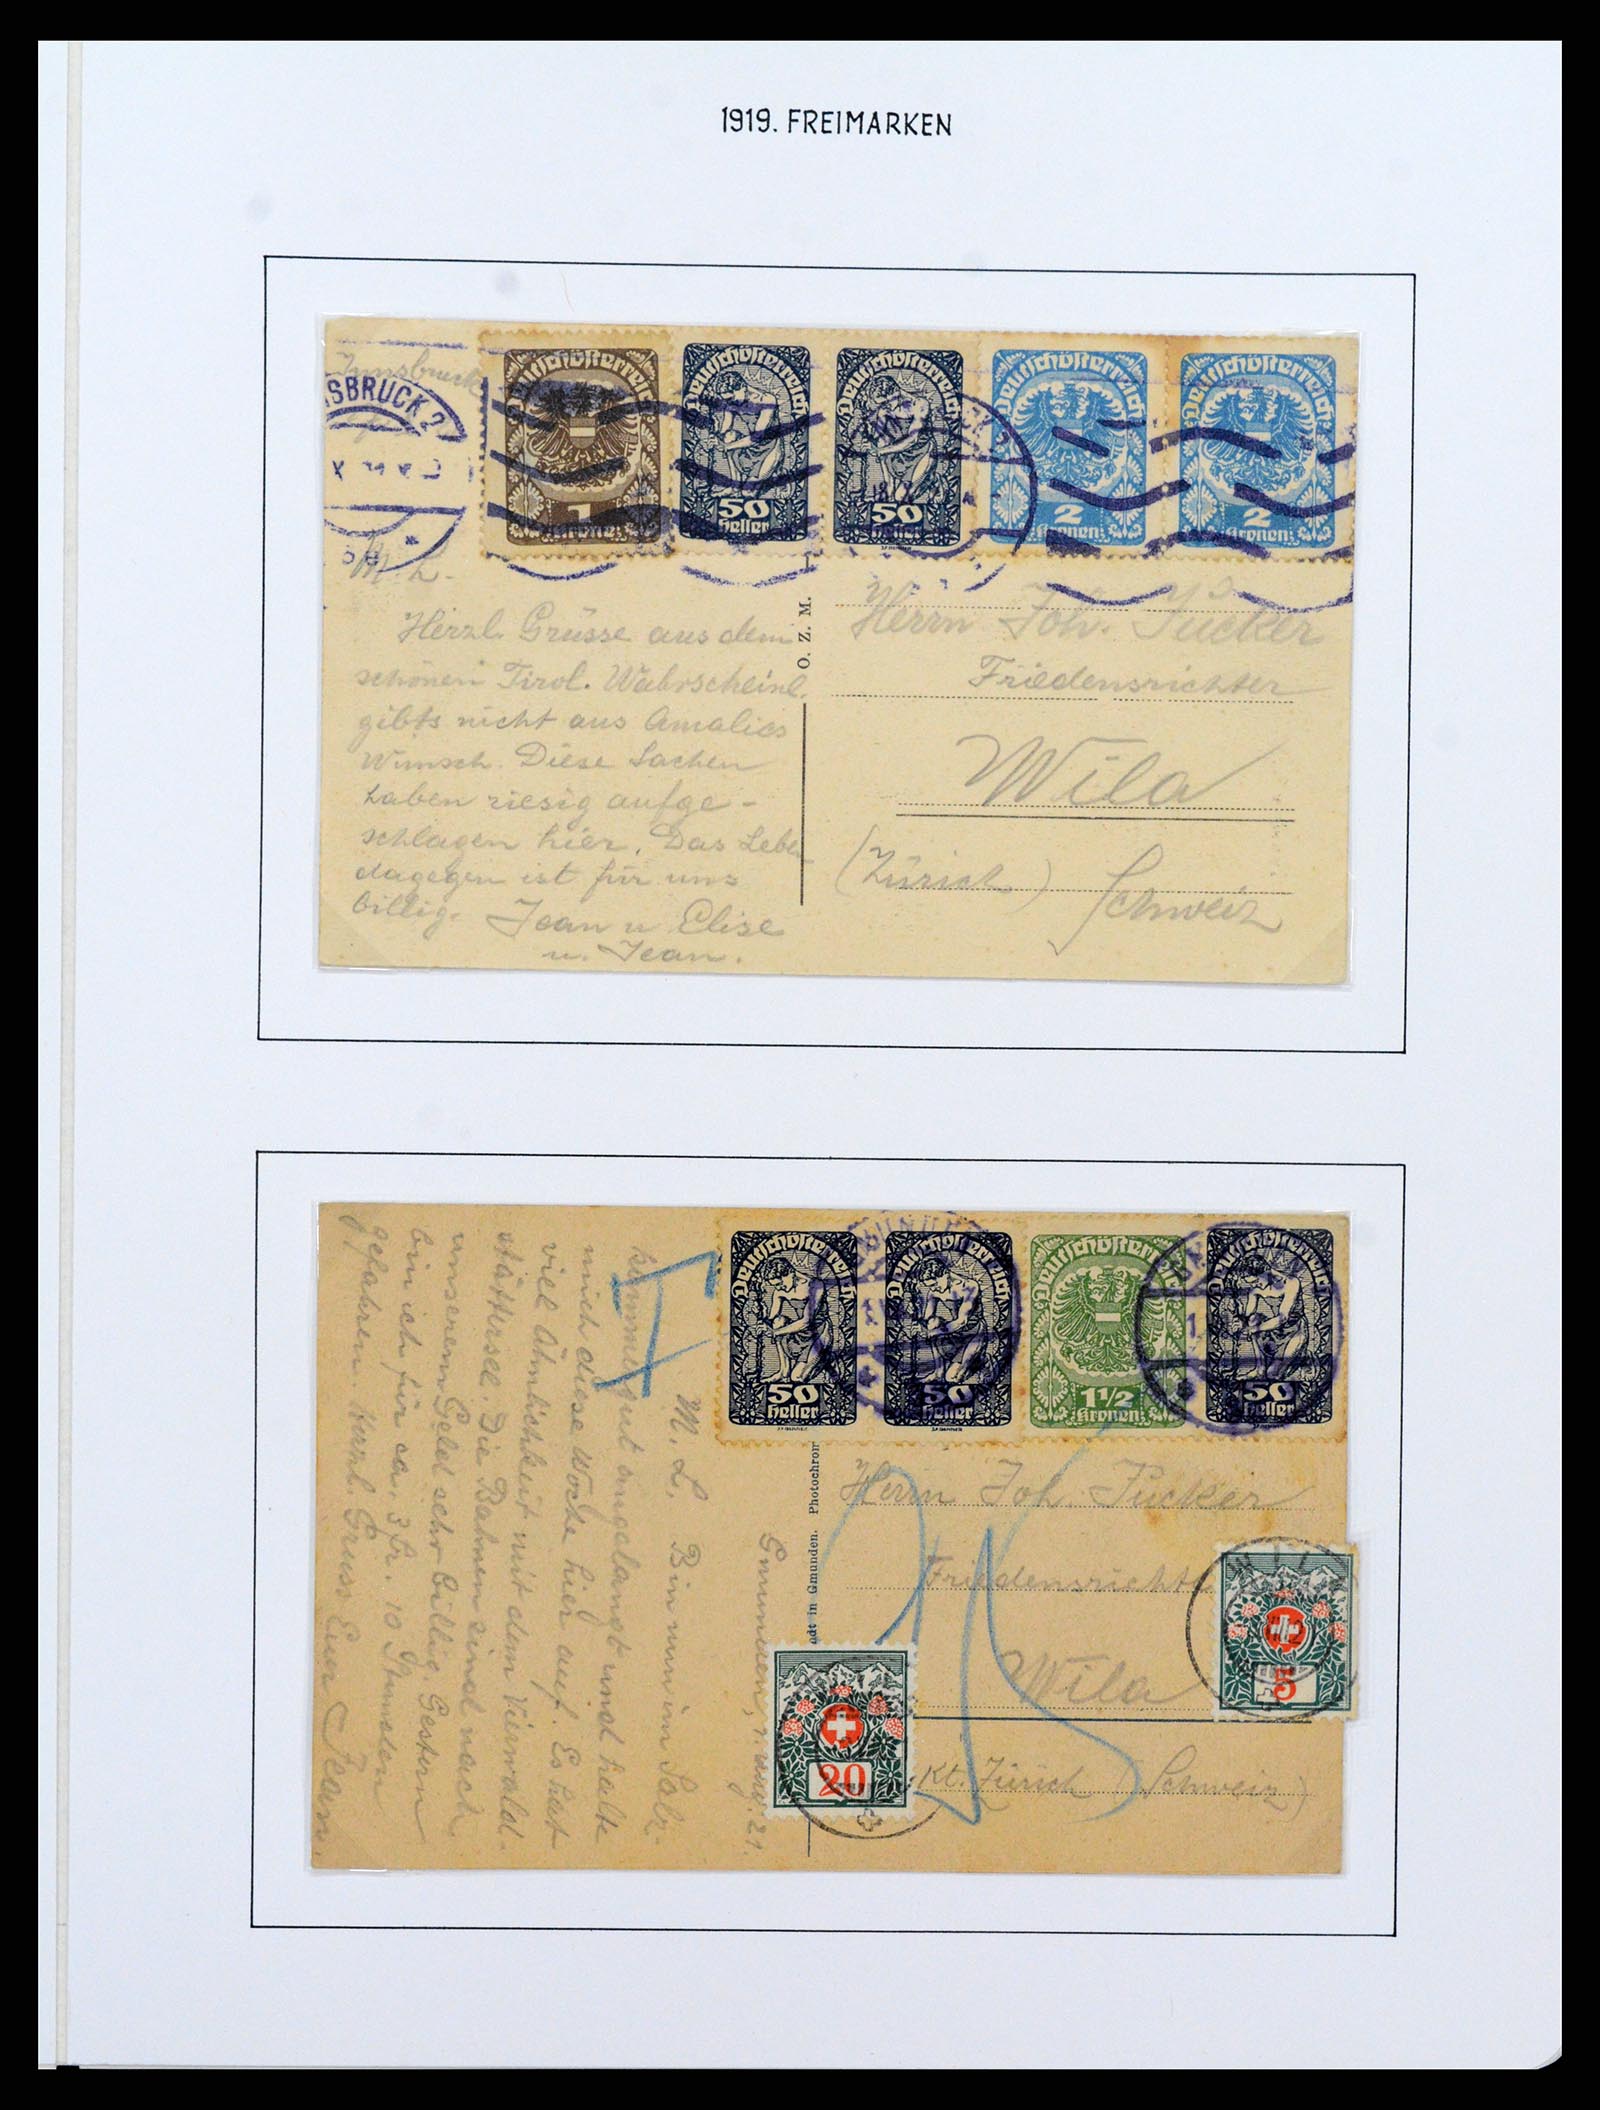 1919. FREIMARKEN
Innsbruck
NSBRUCK 2
Deutschösterreich
1
Krone
Deutschösterreich
50
Heller
Deutschösterreich
50
Deutschösterreich
2
Kronen
Deutschösterreich
2
Kronen
M. L.
Herzl. Grüsse aus dem
schönen Tirol. Wahrscheinl.
gibts nicht aus Amalies
Wunsch. Diese Sachen
haben riesig aufge-
schlagen hier. Das Leben
dagegen ist für uns
billig. Jean u Elise
u. Jean.
O. Z. M.
Herrn Joh. Pücker
Friedensrichter
Wila
(Zürich) Schweiz
Deutschösterreich
50
Heller
Deutschösterreich
50
Heller
Deutschösterreich
1½
Kronen
Deutschösterreich
50
Heller
T
Gmunden, 11. Aug. 21.
M. L. Bin nun im Salz-
kammergut angelangt und halte
mich diese Woche hier auf. Es hat
viel Ähnlichkeit mit dem Vierwald-
stättersee. Die Bahnen sind nach
unserem Geld sehr billig. Gestern
bin ich für ca. 3 Fr. 10 Stunden
gefahren. Herzl. Gruss Euer Jean.
adt in Gmunden. Photochrom
Herrn Joh. Pücker
Friedensrichte
Wila
Kt. Zürich (Schweiz)
25
WILA
5
20